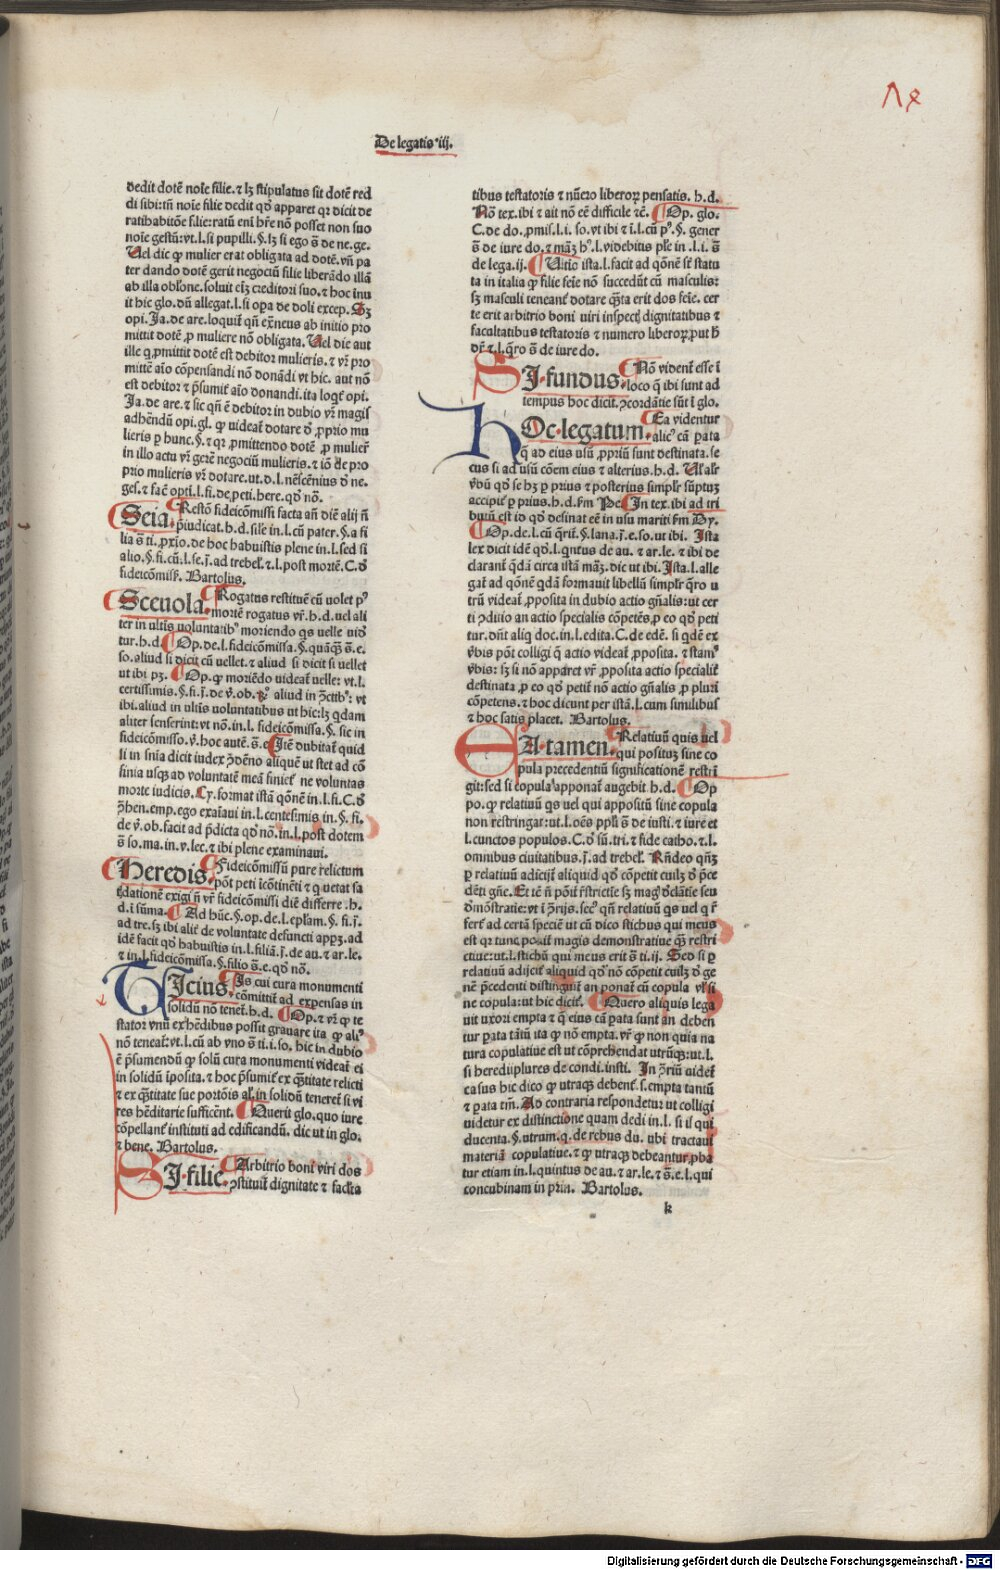 De legatis .iij.
dedit dotē noīe filie. ⁊ lꝫ stipulatus sit dotē red
di sibi: tñ noīe filie dedit qđ apparet qꝛ dicit de
ratihabitōe filie: ratū eni hr̄e nō posset non suo
noīe gestū: vt. l. si pupilli. §. lꝫ si ego s̄ de ne. ge.
Uel dic ꝙ mulier erat obligata ad dotē. vñ pa
ter dando dotē gerit negociū filie liberādo illā
ab illa obłone. soluit eiꝫ creditori suo. ⁊ hoc inu
it hic glo. dū allegat. l. si oꝑa de doli excep. Sꝫ
opi. Ja. de are. loquiť qñ exñeus ab initio pro
mittit dotē ꝓ muliere nō obligata. Uel dic aut
ille q ꝓmittit dotē est debitor mulieris. ⁊ vr̄ pro
mittē aīo cōpensandi nō donādi vt hic. aut nō
est debitor ⁊ p̄sumiť aīo donandi. ita loqť opi.
Ja. de are. ⁊ sic qñ ē debitor in dubio vr̄ magis
adhēdū opi. gl. ꝙ uideať dotare đ ꝓprio mu
lieris ꝑ hunc. §. ⁊ qꝛ ꝓmittendo dotē ꝓ mulieř
in illo actu vr̄ gerē negociū mulieris. ⁊ iō de pro
prio mulieris vr̄ dotare. ut. đ. l. nēscēnius đ ne.
ges. ⁊ facē opti. l. fi. de. peti. here. qđ nō.
Seia. Restō fideicōmissi facta añ diē alij ñ
p̄iudicat. h. d. sile in. l. cū pater. §. a fi
lia s̄ ti. ꝓxio. de hoc habuistis plene in. l. sed si
alio. §. fi. cū. l. se. j̄. ad trebeł. ⁊. l. post mortē. C. đ
fideicōmiss̄. Bartolus.
Sceuola. Rogatus restituē cū uolet pꝰ
mortē rogatus vr̄. h. d. uel ali
ter in ultīs voluntatibꝰ moriendo qs uelle uiđ
tur. h. d. Op. de. l. fideicōmissa. §. quāqꝫ s̄. e.
so. aliud si dicit cū uellet. ⁊ aliud si dicit si uellet
ut ibi pꝫ. Op. ꝙ moriēdo uideať uelle: vt. l.
certissimis. §. fi. j̄. de v̄. ob. aliud in ꝯctībꝰ: vt
ibi. aliud in ultīs voluntatibus ut hic: lꝫ qdam
aliter senserint: vt nō. in. l. fideicōmissa. §. sic in
fideicōmisso. v̄. hoc autē. s̄. e. Itē dubitať quid
si in snīa dicit iudex ꝯdēno aliquē ut stet ad cō
finia usqꝫ ad voluntatē meā finieť ne voluntas
morte iudicis. Cy. format istā qōnē in. l. fi. C. đ
ꝯhen. emp. ego exaīaui in. l. centesimis in. §. fi.
de v̄. ob. facit ad p̄dicta qđ nō. in. l. post dotem
s̄ so. ma. in. v. lec. ⁊ ibi plene examinaui.
Heredis. Fideicōmissū pure relictum
pōt peti īcōtinēti ⁊ q uetat sa
tisdationē exigi ñ vr̄ fideicōmissi diē differre. h.
d. ī sūma. Ad hūc. §. op. de. l. epłam. §. fi. j̄.
ad tre. sꝫ ibi aliť de voluntate defuncti appꝫ. ad
idē facit qđ habuistis in. l. filiā. j̄. de au. ⁊ ar. le.
⁊ in. l. fideicōmissa. §. filio s̄. e. qđ nō.
Ticius. Is cui cura monumenti
cōmittiť ad expensas in
solidū nō teneť. h. d. Op. ⁊ vr̄ ꝙ te
stator vnū ex hēdibus possit grauare ita ꝙ aliꝰ
nō teneať: vt. l. cū ab vno s̄ ti. i. so. hic in dubio
ē p̄sumendū ꝙ solū cura monumenti videať ei
in solidū īposita. ⁊ hoc p̄sumiť ex q̄titate relicti
⁊ ex q̄titate sue portōis al. in solidū teneret si vi
res hēditarie sufficēnt. Querit glo. quo iure
cōpellanť instituti ad edificandū. dic ut in glo.
⁊ bene. Bartolus.
SJ. filie. Arbitrio boni viri dos
ꝯstituiť dignitate ⁊ facłta
tibus testatoris ⁊ nūero liberoꝝ pensatis. h. d.
Nō tex. ibi ⁊ ait nō eē difficile ⁊c̄. Op. glo.
C. de do. ꝓmis. l. i. so. vt ibi ⁊ ī. l. cū pꝰ. §. gener
s̄ de iure do. ⁊ māꝫ hꝰ. l. videbitis ple in. l. i. s̄
de lega. ij. Ultīo ista. l. facit ad qōnē sť statu
ta in italia ꝙ filie feīe nō succedūt cū masculis:
sꝫ masculi teneanť dotare q̄ta erit dos feīe. cer
te erit arbitrio boni viri inspectꝭ dignitatibus ⁊
facultatibus testatoris ⁊ numero liberoꝝ. put h̄
dr̄ ⁊. l. q̄ro s̄ de iure do.
SJ. fundus. Nō videnť esse ī
loco q̄ ibi sunt ad
tempus hoc dicit. ꝯcordātie sūt ī glo.
hOc. legatum. Ea videntur
alicꝰ cā ꝑata
q̄ ad eius usū ꝓpriū sunt destinata. se
cus si ad usū cōem eius ⁊ alterius. h. d. Uł ałr
v̄bū qđ se hꝫ ꝑ prius ⁊ posterius simplr̄ sūptuꝫ
accipiť ꝑ prius. h. d. sm̄ Pe. In tex. ibi ad tri
butū est id qđ desinat eē in usu mariti sm̄ Dy.
Op. de. l. cū q̄riť. §. lana. j̄. e. so. ut ibi. Ista
lex dicit idē qđ. l. q̄ntus de au. ⁊ ar. le. ⁊ ibi de
clarant q̄dā circa istā māꝫ. dic ut ibi. Ista. l. alle
gať ad qōnē q̄dā formauit libellū simplr̄ q̄ro u
trū videať ꝓposita in dubio actio gñalis: ut cer
ti ꝯditio an actio specialis cōpetēs. ꝑ eo qđ peti
tur. dn̄t aliq doc. in. l. edita. C. de edē. si qdē ex
v̄bis pōt colligi q̄ actio videať ꝓposita. ⁊ stamꝰ
v̄bis: sꝫ si nō apparet vr̄ ꝓposita actio specialiť
destinata ꝓ eo qđ petiť nō actio gñalis ꝓ pluri
cōpetens. ⁊ hoc dicunt per istā. l. cum similibus
⁊ hoc satis placet. Bartolus.
EA. tamen. Relatiuū quis uel
qui posituꝫ sine co
pula precedentiū significationē restrī
git: sed si copula apponať augebit. h. d. Op
po. ꝙ relatiuū qs uel qui appositū sine copula
non restringat: ut. l. oēs ppłi s̄ de iusti. ⁊ iure et
l. cunctos populos. C. đ sū. tri. ⁊ fide catho. ⁊. l.
omnibus ciuitatibus. j̄. ad trebeł. Rñdeo qñꝫ
ꝑ relatiuū adiciť aliquid qđ cōpetit cuilꝫ đ p̄ce
dēti gñe. Et tē ñ pōiť r̄strictie sꝫ magꝭ đclatīe seu
đmōstratie: vt ī ꝯrijs. secꝰ qñ relatiuū qs uel q ř
ferť ad certā speciē ut cū dico stichus qui meus
est qꝛ tunc poniť magis demonstratiue q̄ꝫ restri
ctiue: ut. l. stichū qui meus erit s̄ ti. ij. Sed si ꝑ
relatiuū adijciť aliquid qđ nō cōpetit cuilꝫ đ ge
nē p̄cedenti distinguiť an ponať cū copula vł si
ne copula: ut hic diciť. Quero aliquis lega
uit uxori empta ⁊ q̄ eius cā ꝑata sunt an deben
tur ꝑata tātū ita ꝙ nō empta. vr̄ ꝙ non quia na
tura copulatiue est ut cōprehendat utrūqꝫ: ut. l.
si heredi plures de condi. insti. In ꝯriū uideť
casus hic dico ꝙ utraqꝫ debenť. s. empta tantū
⁊ ꝑata tm̄. Ad contraria respondetur ut colligi
uidetur ex distinctione quam dedi in. l. si is qui
ducenta. §. utrum. q. de rebus du. ubi tractaui
materiā copulatiue. ⁊ ꝙ utraqꝫ debeantur ꝓba
tur etiam in. l. quintus de au. ⁊ ar. le. ⁊ s̄. e. l. qui
concubinam in prin. Bartolus.
k
Digitalisierung gefördert durch die Deutsche Forschungsgemeinschaft - DFG